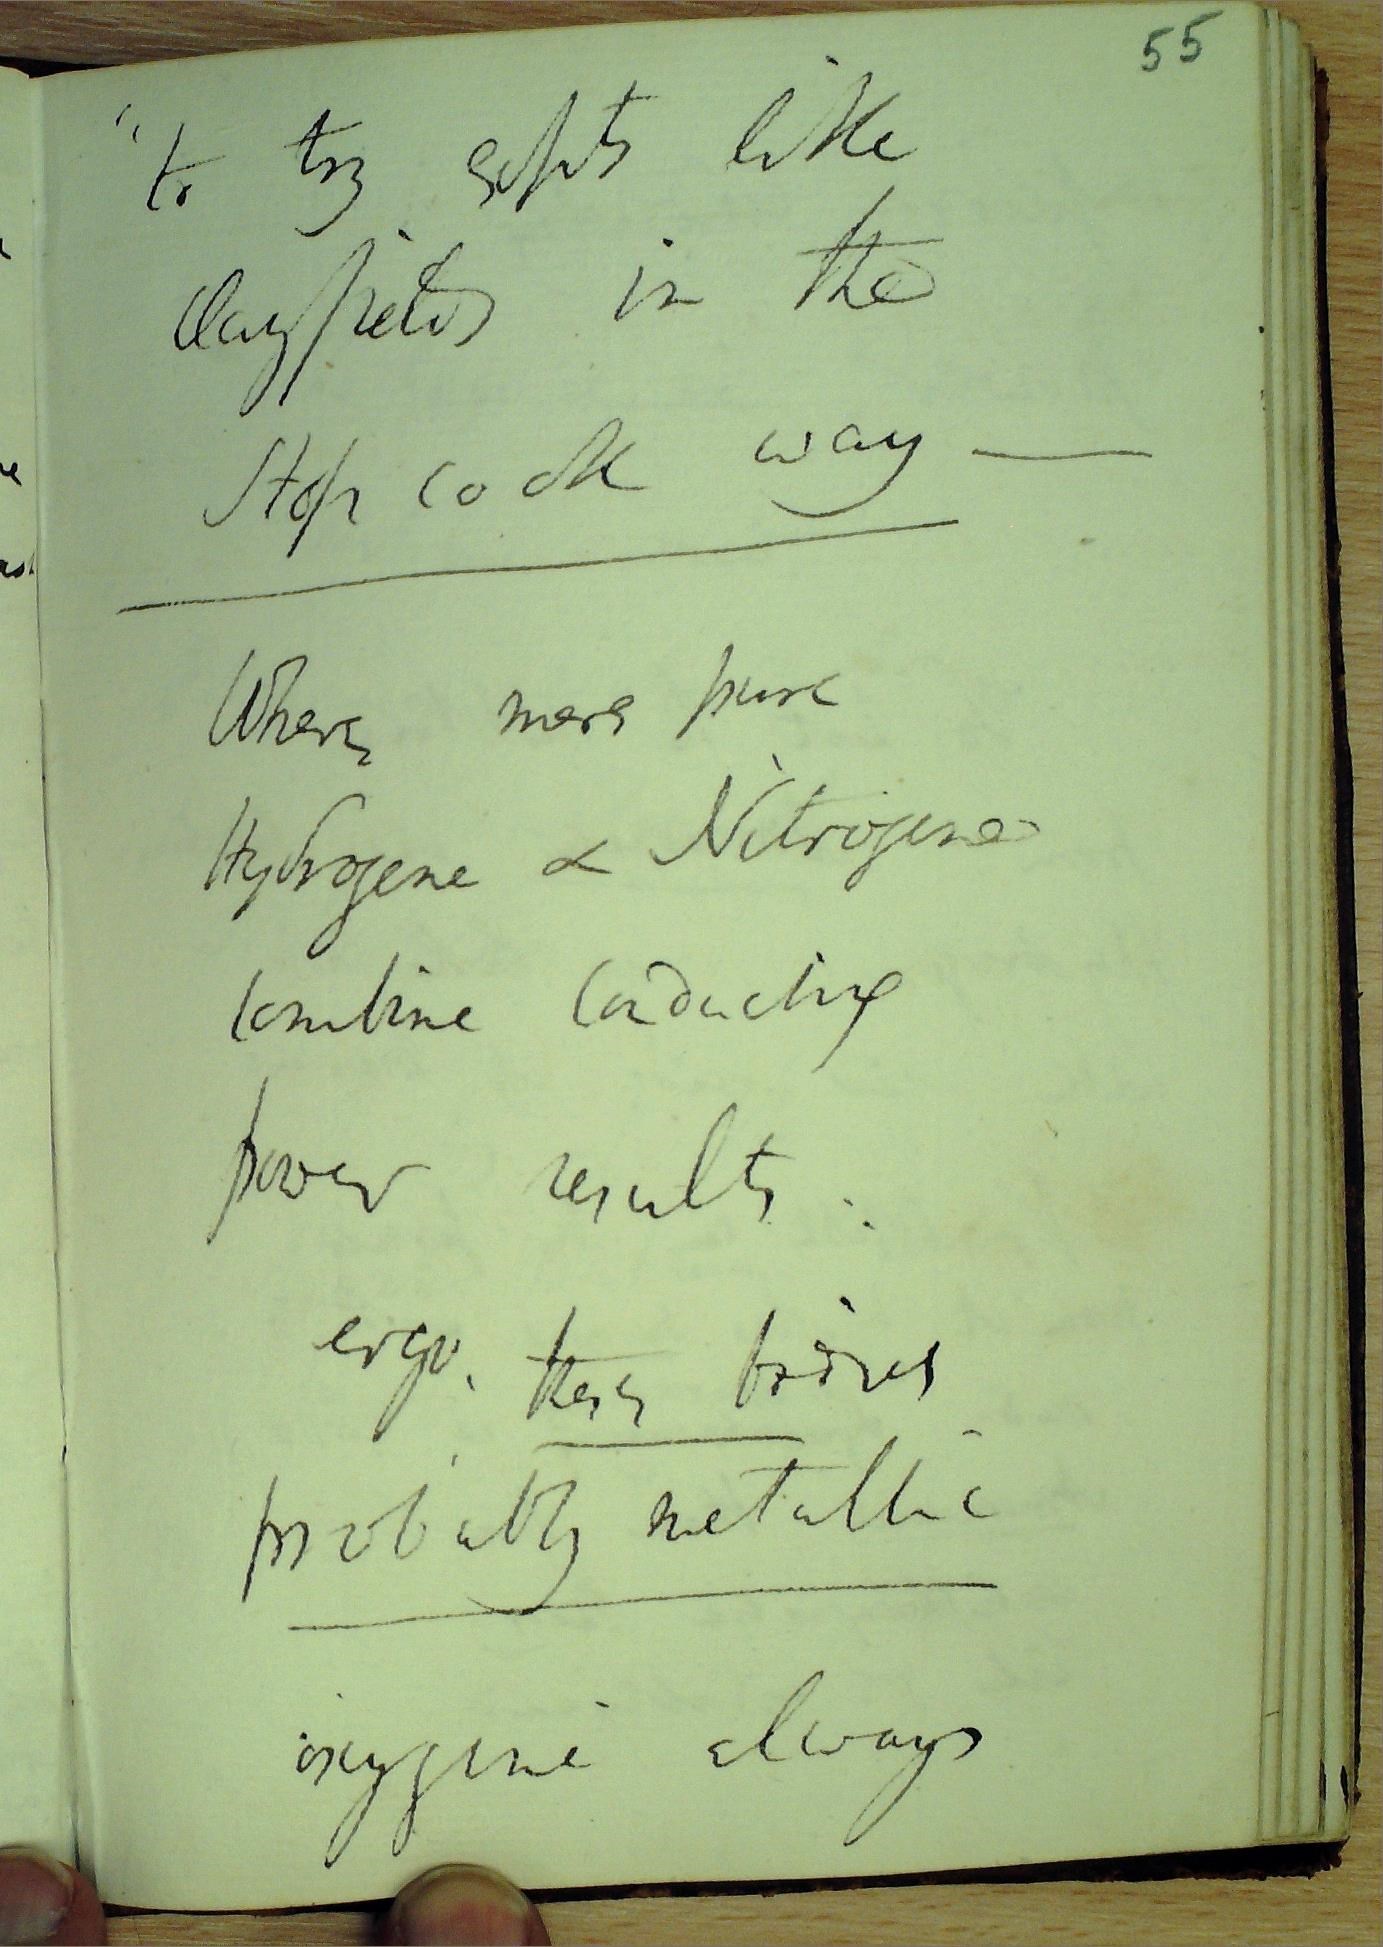 55
"to try salts like
Clayfields in the
Stop cock way —
Where mere pure
Hydrogene & Nitrogene
combine conducting
power results.
ergo. these bodies
probably metallic
oxygene always